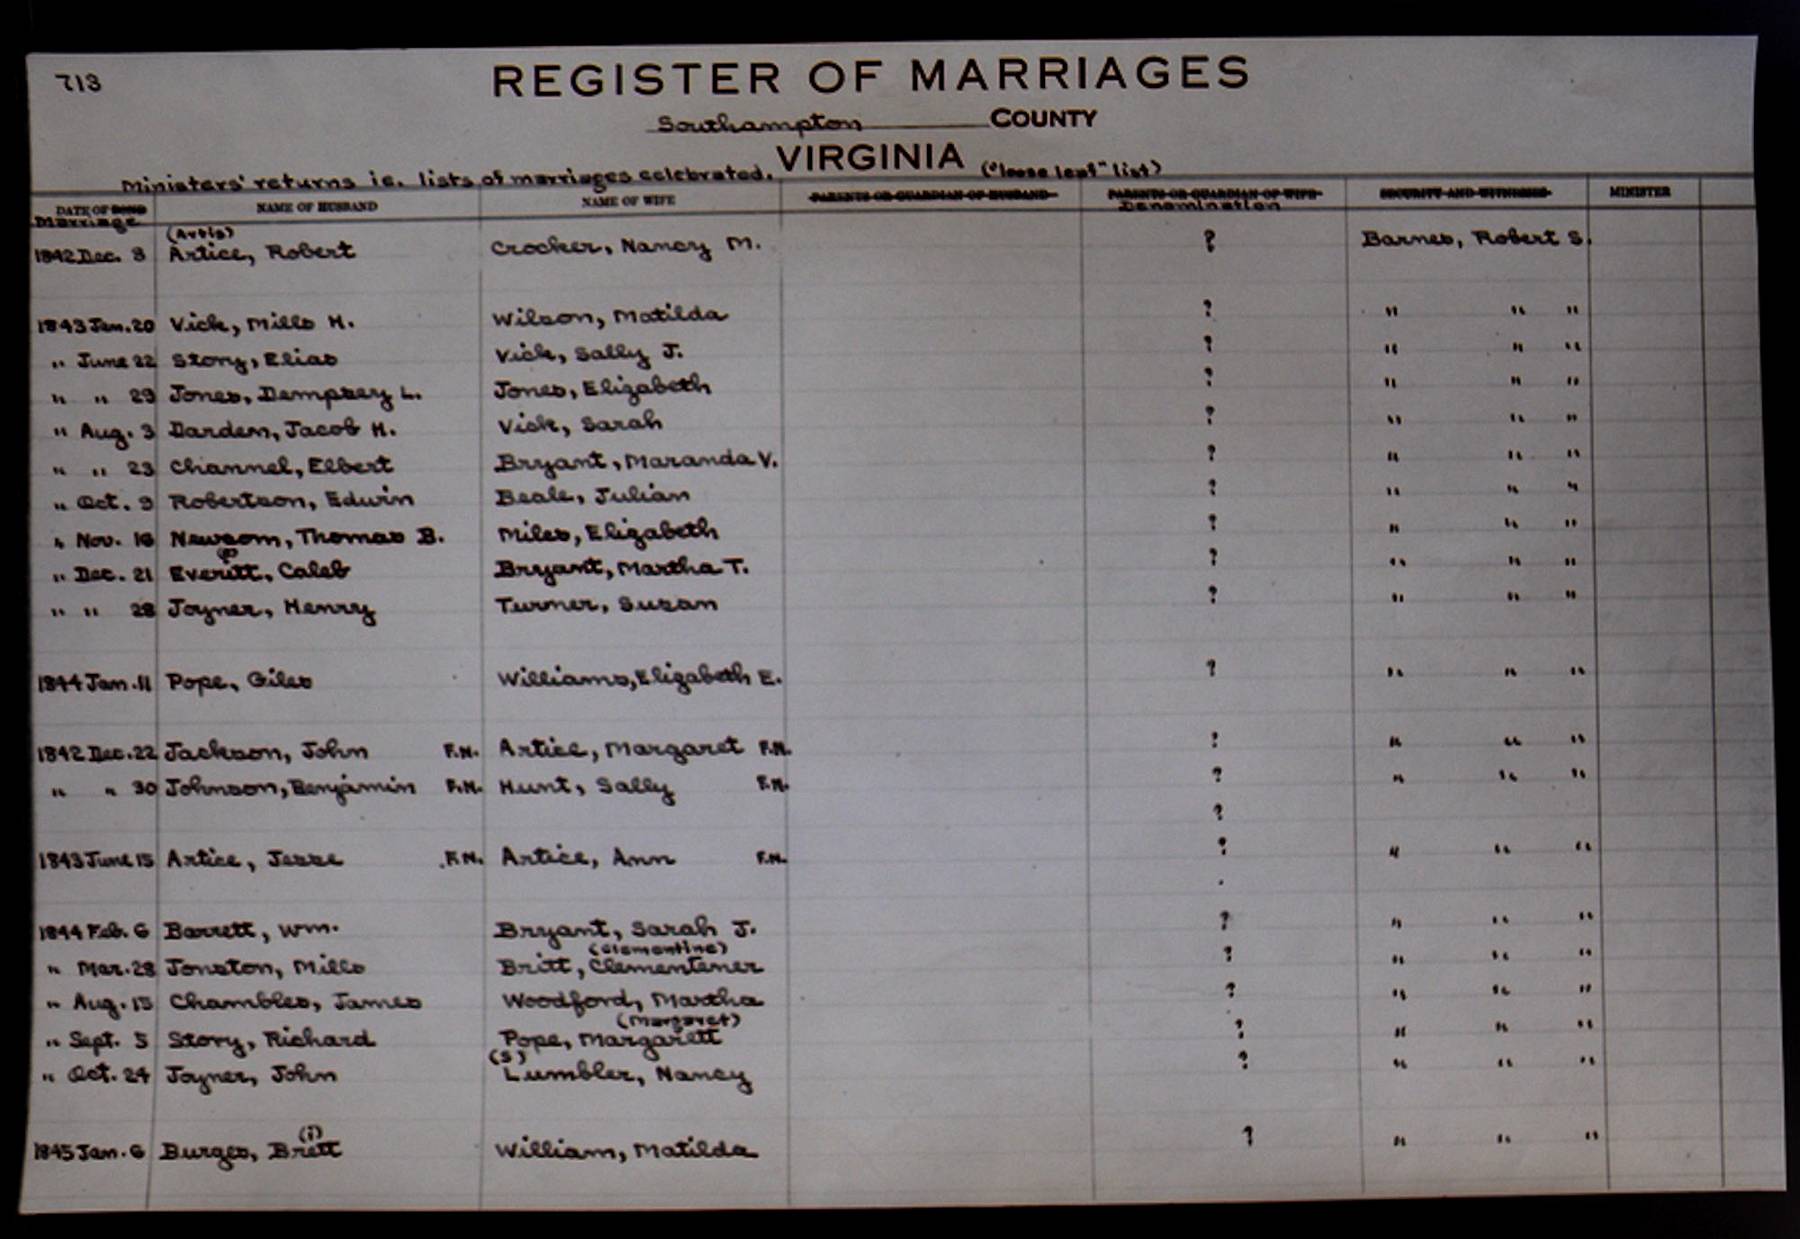 713
REGISTER OF MARRIAGES
Southampton COUNTY
VIRGINIA
Ministers' returns ie. lists of marriages celebrated. ("loose leaf" list)
DATE OF BOND NAME OF HUSBAND NAME OF WIFE PARENTS OR GUARDIAN OF HUSBAND PARENTS OR GUARDIAN OF WIFE SECURITY AND WITNESSES MINISTER
Marriage Denomination
(Artis)
1842 Dec. 8 Artice, Robert Crocker, Nancy M. ? Barnes, Robert S.
1843 Jan. 20 Vick, Mills H. Wilson, Matilda ? " " "
" June 22 Story, Elias Vick, Sally J. ? " " "
" " 29 Jones, Dempsey L. Jones, Elizabeth ? " " "
" Aug. 3 Darden, Jacob H. Vick, Sarah ? " " "
" " 23 Channel, Elbert Bryant, Maranda V. ? " " "
" Oct. 9 Robertson, Edwin Beale, Julian ? " " "
" Nov. 16 Newsom, Thomas B. Miles, Elizabeth ? " " "
" Dec. 21 Everitt, Caleb Bryant, Martha T. ? " " "
" " 28 Joyner, Henry Turner, Susan ? " " "
1844 Jan. 11 Pope, Giles Williams, Elizabeth E. ? " " "
1842 Dec. 22 Jackson, John F.N. Artice, Margaret F.N. ? " " "
" " 30 Johnson, Benjamin F.N. Hunt, Sally F.N. ? " " "
?
1843 June 15 Artice, Jesse F.N. Artice, Ann F.N. ? " " "
1844 Feb. 6 Barrett, Wm. Bryant, Sarah J. ? " " "
(Clementine)
" Mar. 28 Jonston, Mills Britt, Clementener ? " " "
" Aug. 15 Chambles, James Woodford, Martha ? " " "
(Margaret)
" Sept. 5 Story, Richard Pope, Margarett ? " " "
(S)
" Oct. 24 Joyner, John Lumbler, Nancy ? " " "
(i)
1845 Jan. 6 Burges, Brett William, Matilda ? " " "